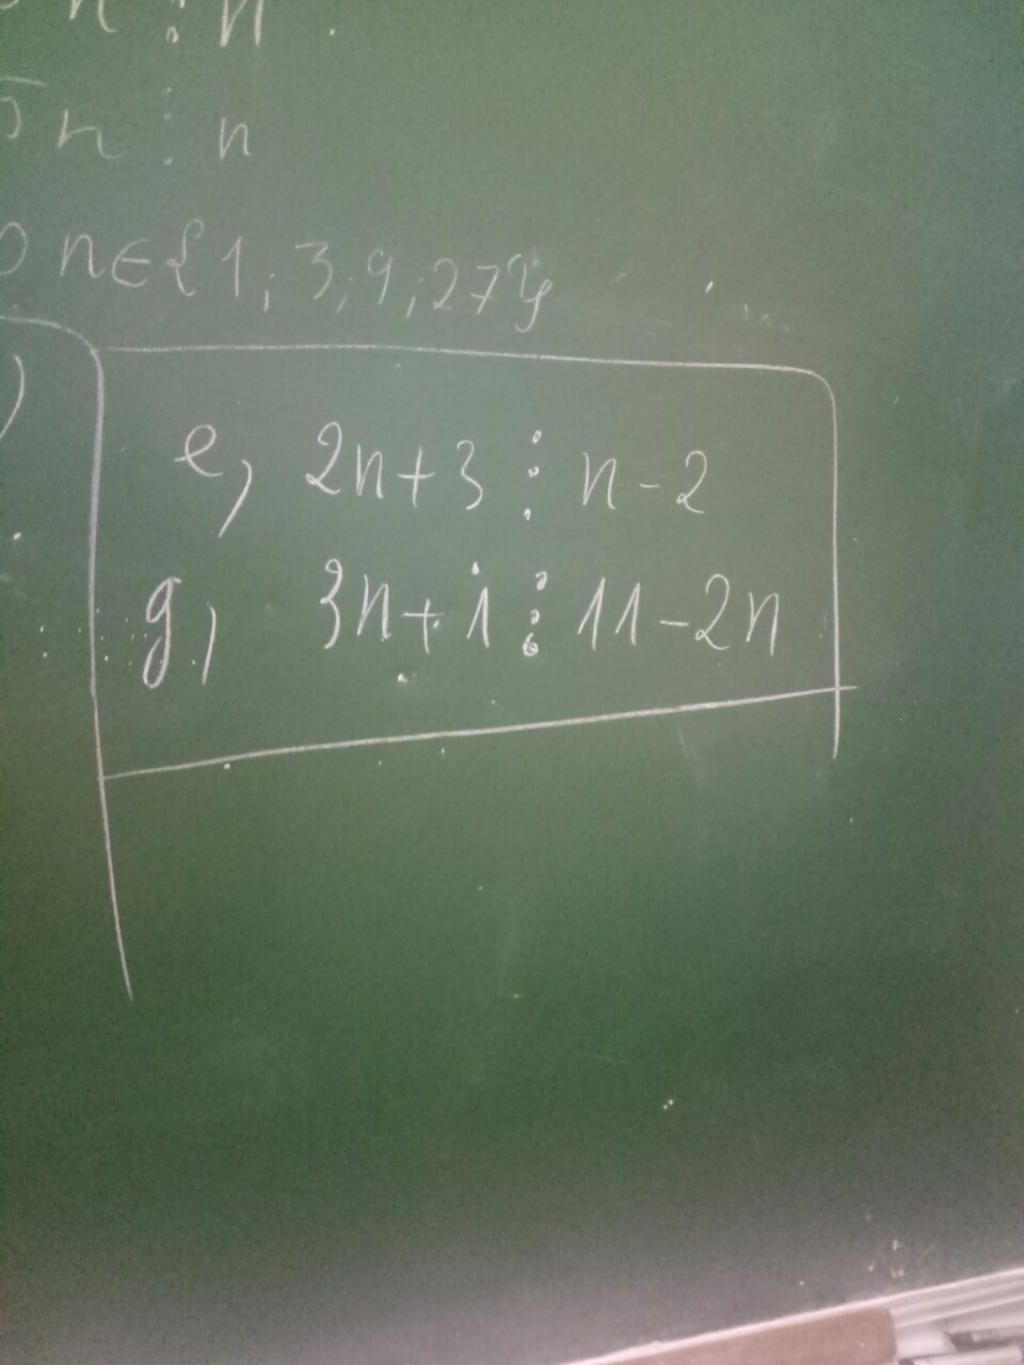 n ⋮ n
5n ⋮ n
n∈{1; 3; 9; 27}
)
e, 2n+3 ⋮ n-2
g, 3n+1 ⋮ 11-2n